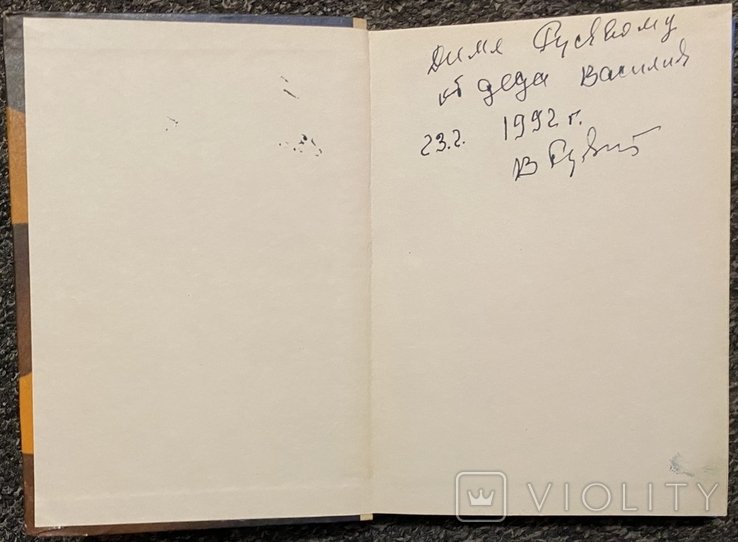 Диме Гусякому
от деда Василия
23.2. 1992 г.
В Гу
VIOLITY